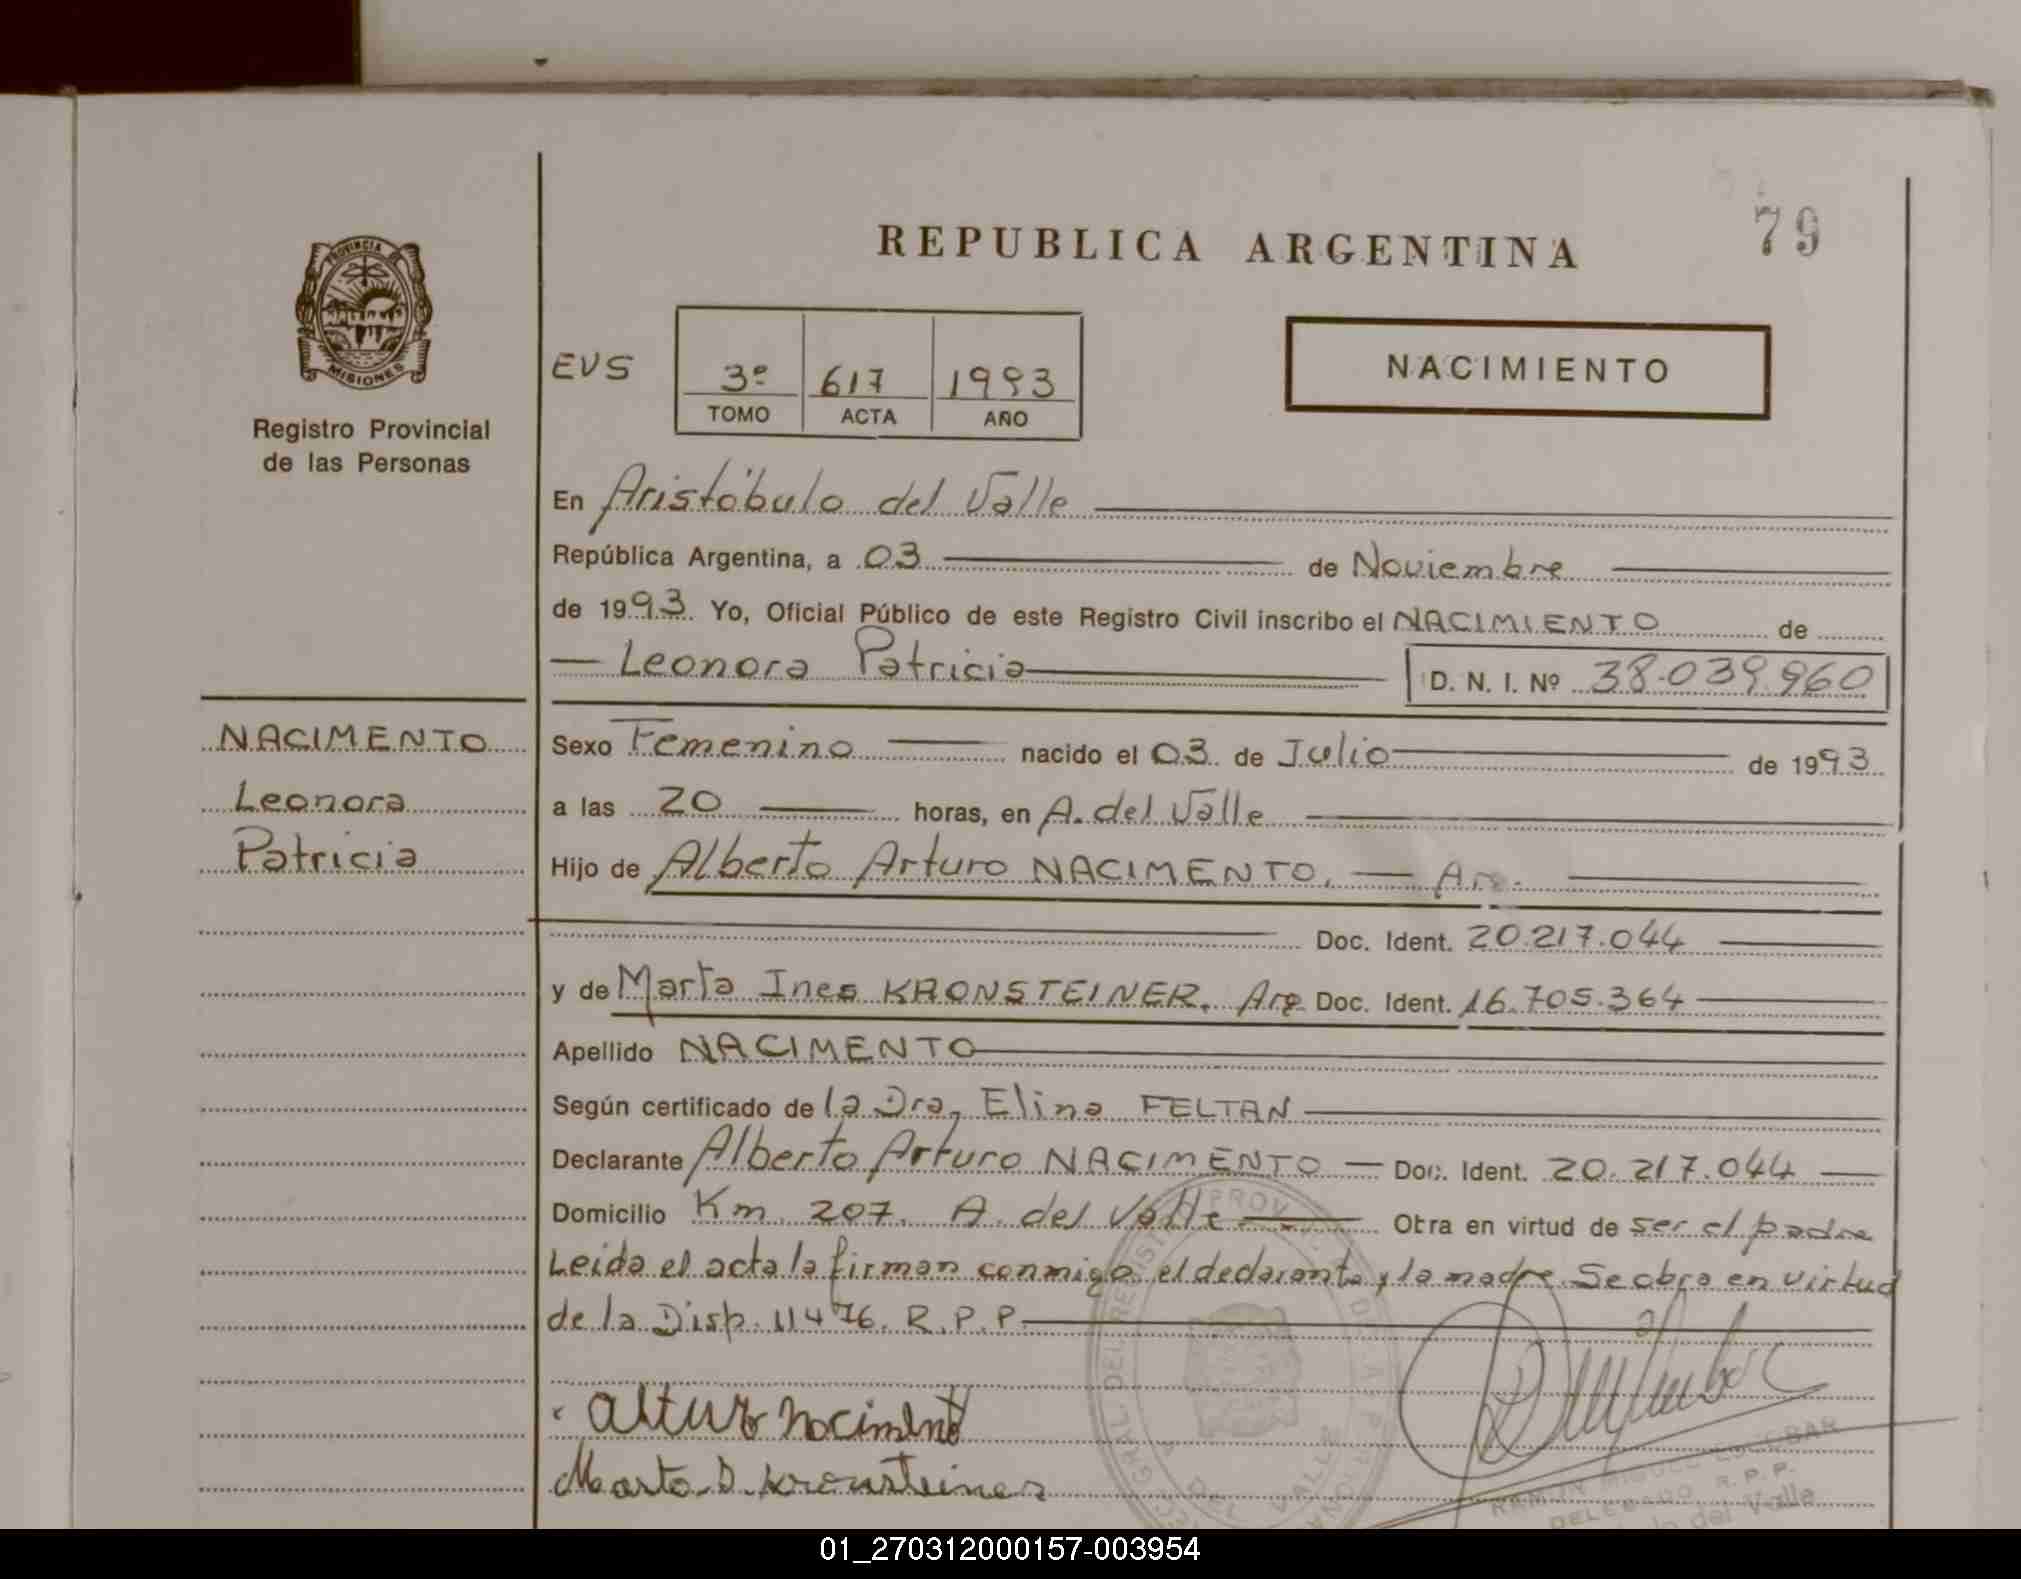 79
REPUBLICA ARGENTINA
PROVINCIA DE
MISIONES
Registro Provincial
de las Personas
EVS
3º 617 1993
TOMO ACTA AÑO
NACIMIENTO
En Aristóbulo del Valle
República Argentina, a 03 de Noviembre
de 1993 Yo, Oficial Público de este Registro Civil inscribo el NACIMIENTO de
Leonora Patricia D. N. I. Nº 38.039.960
NACIMENTO
Leonora
Patricia
Sexo Femenino nacido el 03 de Julio de 1993
a las 20 horas, en A. del Valle
Hijo de Alberto Arturo NACIMENTO. — Ar.
Doc. Ident. 20.217.044
y de Marta Ines KRONSTEINER. Arg Doc. Ident. 16.705.364
Apellido NACIMENTO
Según certificado de la Dra. Elina FELTAN
Declarante Alberto Arturo NACIMENTO — Doc. Ident. 20.217.044
Domicilio Km. 207. A. del Valle Obra en virtud de ser el padre
Leida el acta la firman conmigo el declarante y la madre. Se obra en virtud
de la Disp. 114 76. R.P.P.
Nociment
Marta I. Kronsteiner
RAMON MIGUEL ESCOBAR
DELEGADO R. P. P.
del Valle
01_270312000157-003954